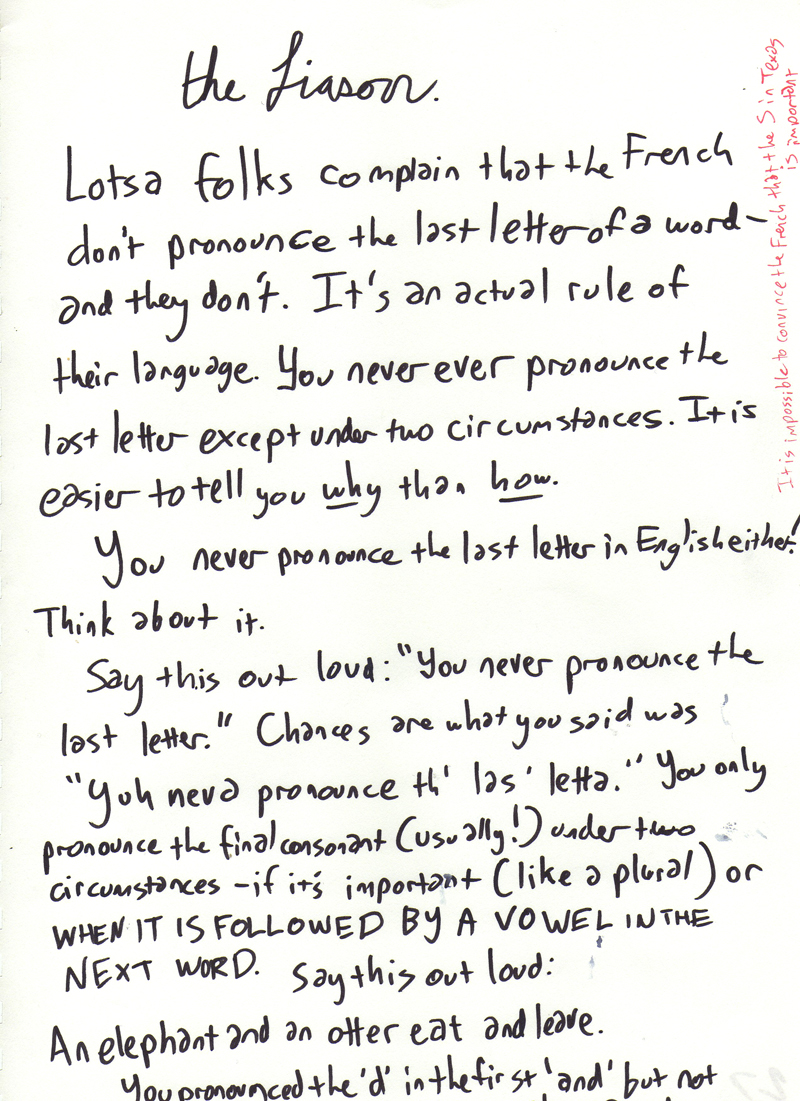 the Liason.
Lotsa folks complain that the French
don't pronounce the last letter of a word—
and they don't. It's an actual rule of
their language. You never ever pronounce the
last letter except under two circumstances. It is
easier to tell you why than how.
You never pronounce the last letter in English either!
Think about it.
Say this out loud: "You never pronounce the
last letter." Chances are what you said was
"Yuh neva pronounce th' las' letta." You only
pronounce the final consonant (usually!) under two
circumstances - if it's important (like a plural) or
WHEN IT IS FOLLOWED BY A VOWEL IN THE
NEXT WORD. Say this out loud:
An elephant and an otter eat and leave.
You pronounced the 'd' in the first 'and' but not
It is impossible to convince the French that the S in Texas
is important